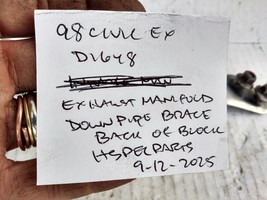 98 CIVIC EX
D1648
EXHAUST MANIFOLD
DOWNPIPE BRACE
BACK OF BLOCK
HSPECPARTS
9-12-2025